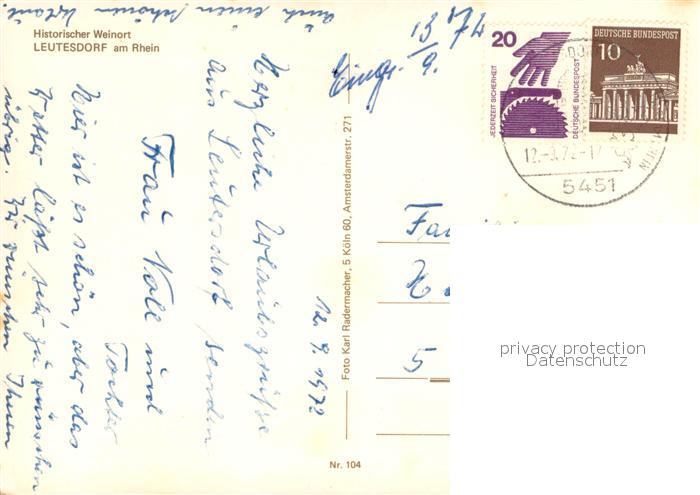 Historischer Weinort
LEUTESDORF am Rhein
13/9. 72
Eingr.
12.9.1972
Herzliche Urlaubsgrüße
aus Leutesdorf senden
Frau Noll und
Tochter
Hier ist es schön, aber das
Wetter läßt sehr zu wünschen
übrig. Wir wünschen Ihnen
auch einen schönen Urlaub.
Foto Karl Radermacher, 5 Köln 60, Amsterdamerstr. 271
Nr. 104
20
JEDERZEIT SICHERHEIT
DEUTSCHE BUNDESPOST
DEUTSCHE BUNDESPOST
10
5451
Fa
H
5
privacy protection
Datenschutz